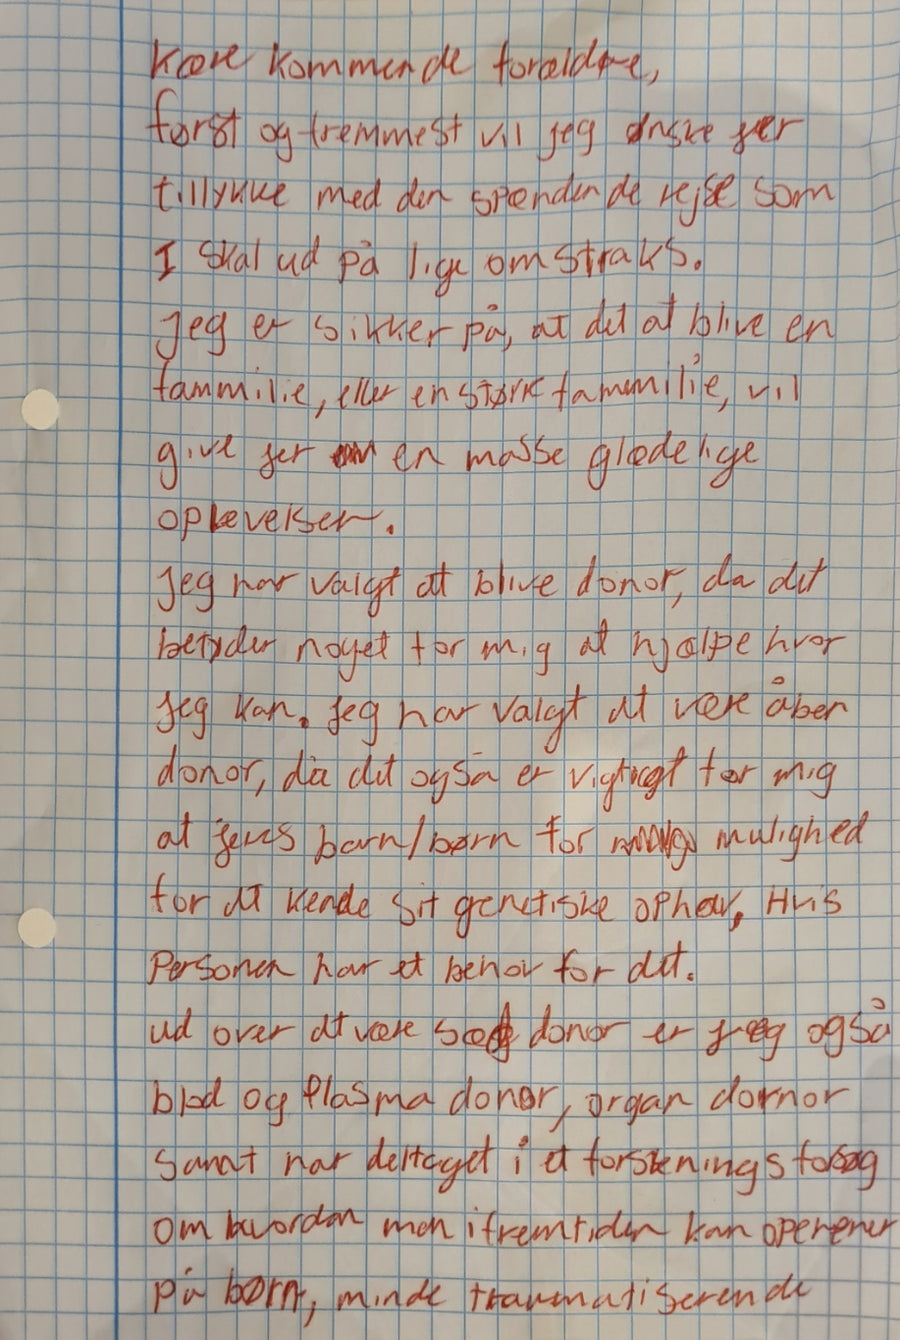 Kære kommende forældre,
først og fremmest vil jeg ønske jer
tillykke med den spændende rejse som
I skal ud på lige om straks.
Jeg er sikker på, at det at blive en
fammilie, eller en større fammilie, vil
give jer en masse glædelige
oplevelser.
Jeg har valgt at blive donor, da det
betyder noget for mig at hjælpe hvor
jeg kan. Jeg har valgt at være åben
donor, da det også er vigtigt for mig
at jeres barn/børn for mulighed
for at kende sit genetiske ophav, Hvis
Personen har et behov for det.
ud over at være sæd donor er jeg også
blod og Plasma donor, organ dornor
Samt har deltaget i et forskningsforsøg
om hvordan man i fremtiden kan operener
På børn, minde traumatiserende